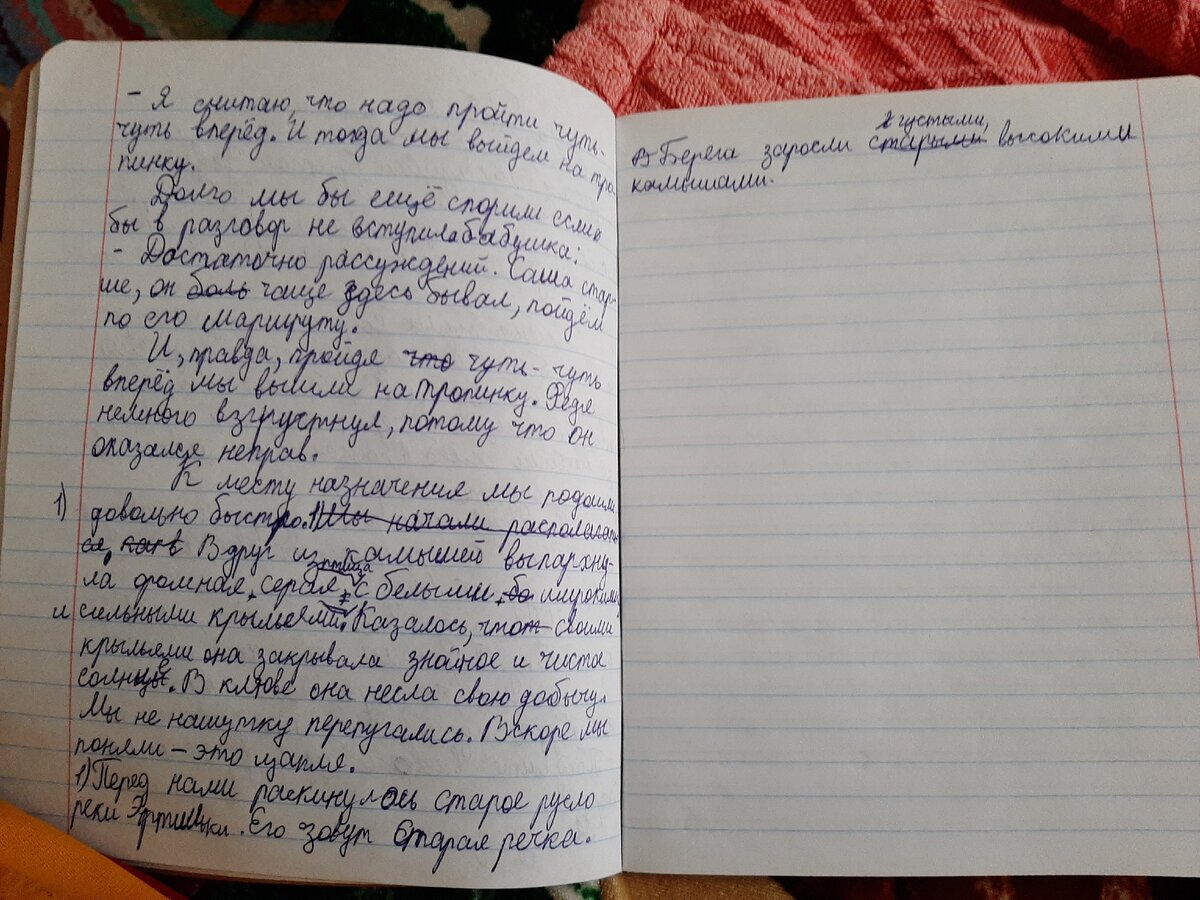 - Я считаю, что надо пройти чуть-
чуть вперёд. И тогда мы выйдем на тро
пинку.
Долго мы бы ещё спорили если
бы в разговор не вступила бабушка:
- Достаточно рассуждений. Саша стар-
ше, он боль чаще здесь бывал, пойдём
по его маршруту.
И, правда, пройдя что чуть-чуть
вперёд мы вышли на тропинку. Федя
немного взгрустнул, потому что он
оказался неправ.
К месту назначения мы
1) довольно быстро. 1) Мы начали располагать
ся, как Вдруг из камышей выпархну-
птица
ла серая, с белыми, бо широкими
и сильными крыльями. Казалось, что своими
крыльями она закрывала знойное и чистое
солнце. В клюве она несла свою добычу.
Мы не на шутку перепугались. Вскоре мы
поняли - это цапля.
1) Перед нами раскинулось старое русло
реки. Его зовут Старая речка.
густыми,
Берега заросли старыми высокими
камышами.